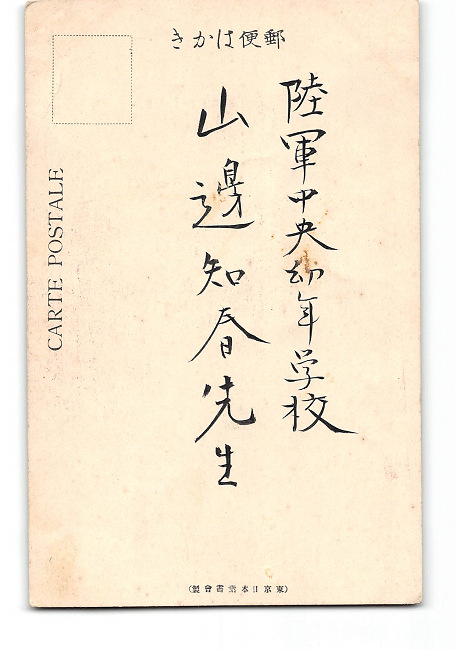 郵便はかき
陸軍中央幼年学校
山邊知春先生
CARTE POSTALE
(東京日本葉書會製)